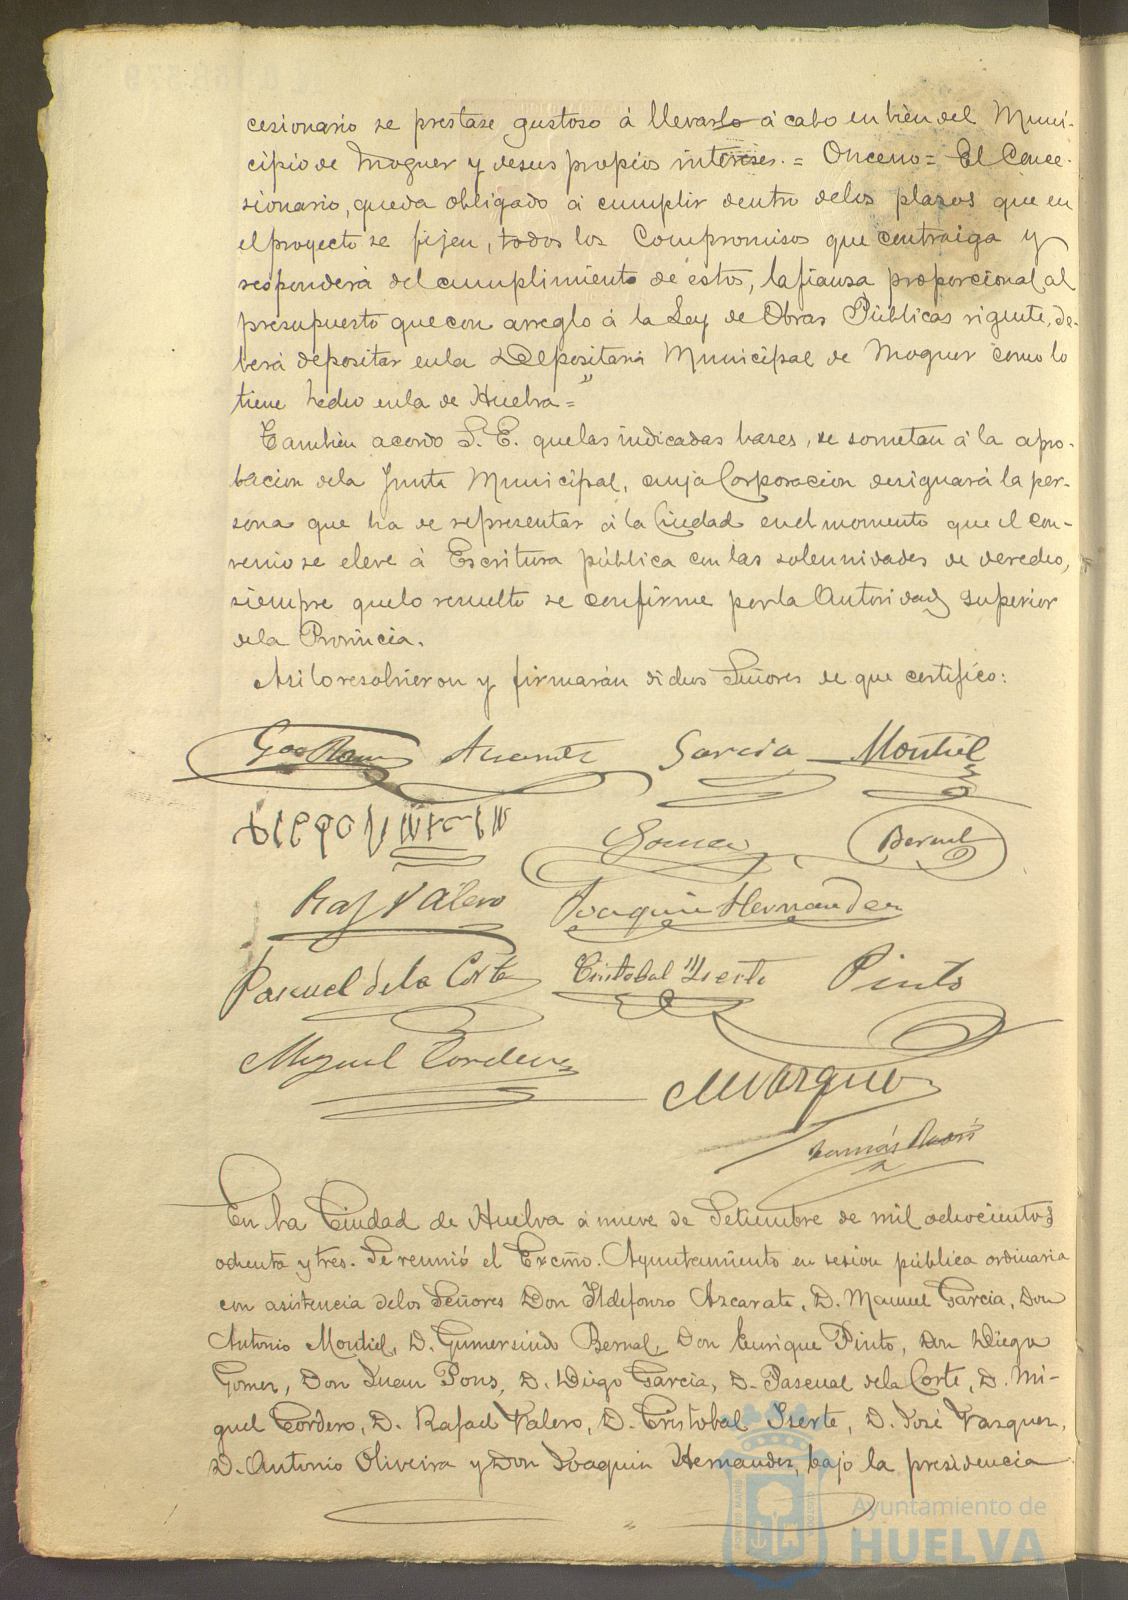 cesionario se prestase gustoso á llevarlo á cabo en bien del Muni-
cipio de Moguer y de sus propios intereses. = Onceno = El Conce-
sionario, queda obligado á cumplir dentro de los plazos que en
el proyecto se fijen, todos los Compromisos que contraiga y
responderá del cumplimiento de éstos, la fianza proporcional al
presupuesto que con arreglo á la Ley de Obras Públicas vigente, de-
berá depositar en la Depositaria Municipal de Moguer como lo
tiene hecho en la de Huelva ="
Tambien acordó S. E. que las indicadas bases, se sometan á la apro-
bacion de la Junta Municipal, cuya Corporacion designará la per-
sona que ha de representar á la Ciudad en el momento que el con-
venio se eleve á Escritura pública con las solemnidades de derecho,
siempre que lo resuelto se confirme por la Autoridad superior
de la Provincia.
Asi lo resolvieron y firmarán dichos Señores de que certifico:
Azcarate Garcia Montiel
Diego Garcia
Gomez Bernal
Raf Valero Joaquin Hernandez
Pascual de la Corte Cristobal Yserte Pinto
Miguel Cordero
M Vazquez
Tomás
En la Ciudad de Huelva á nueve de Setiembre de mil ochocientos
ochenta y tres. Se reunió el Excmo. Ayuntamiento en sesion pública ordinaria
con asistencia de los Señores Don Ildefonso Azcarate, D. Manuel Garcia, Don
Antonio Montiel, D. Gumersindo Bernal, Don Enrique Pinto, Don Diego
Gomez, Don Juan Pons, D. Diego Garcia, D. Pascual de la Corte, D. Mi-
guel Cordero, D. Rafael Valero, D. Cristobal Iserte, D. José Vazquez,
D. Antonio Oliveira y Don Joaquin Hernandez, bajo la presidencia
Ayuntamiento de
HUELVA